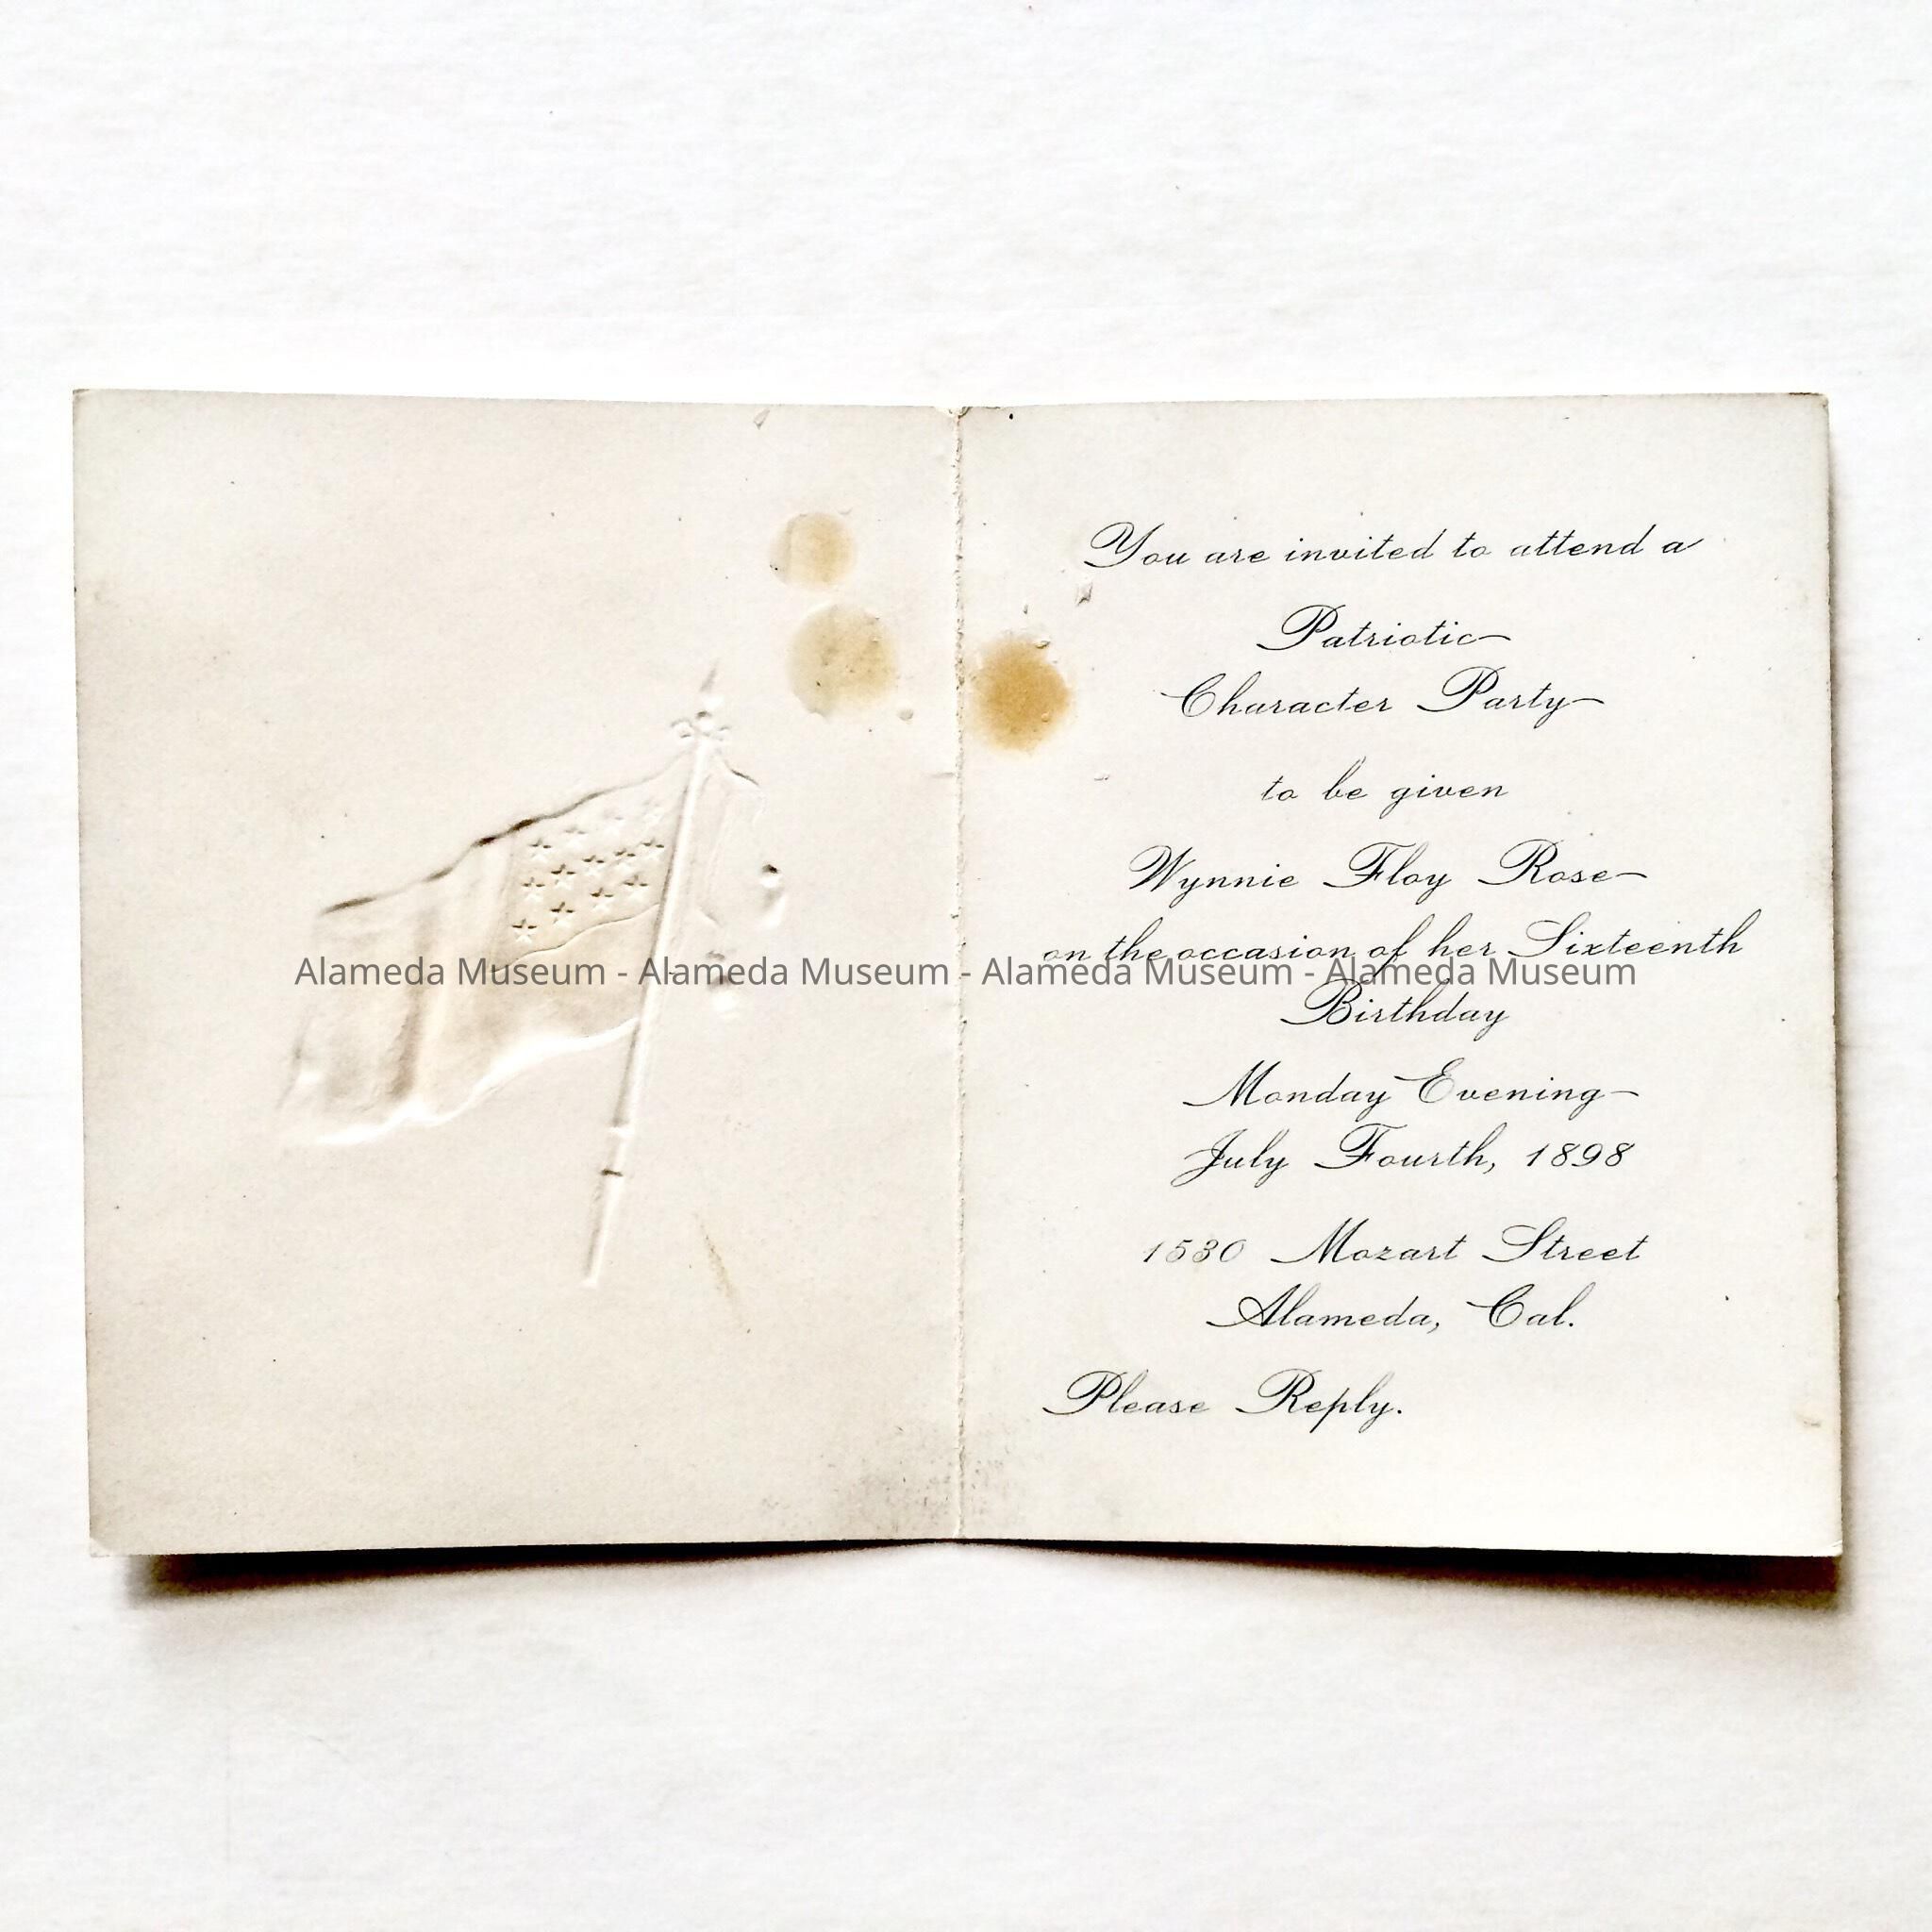 You are invited to attend a
Patriotic
Character Party
to be given
Wynnie Floy Rose
on the occasion of her Sixteenth
Alameda Museum - Alameda Museum - Alameda Museum - Alameda Museum
Birthday
Monday Evening
July Fourth, 1898
1530 Mozart Street
Alameda, Cal.
Please Reply.